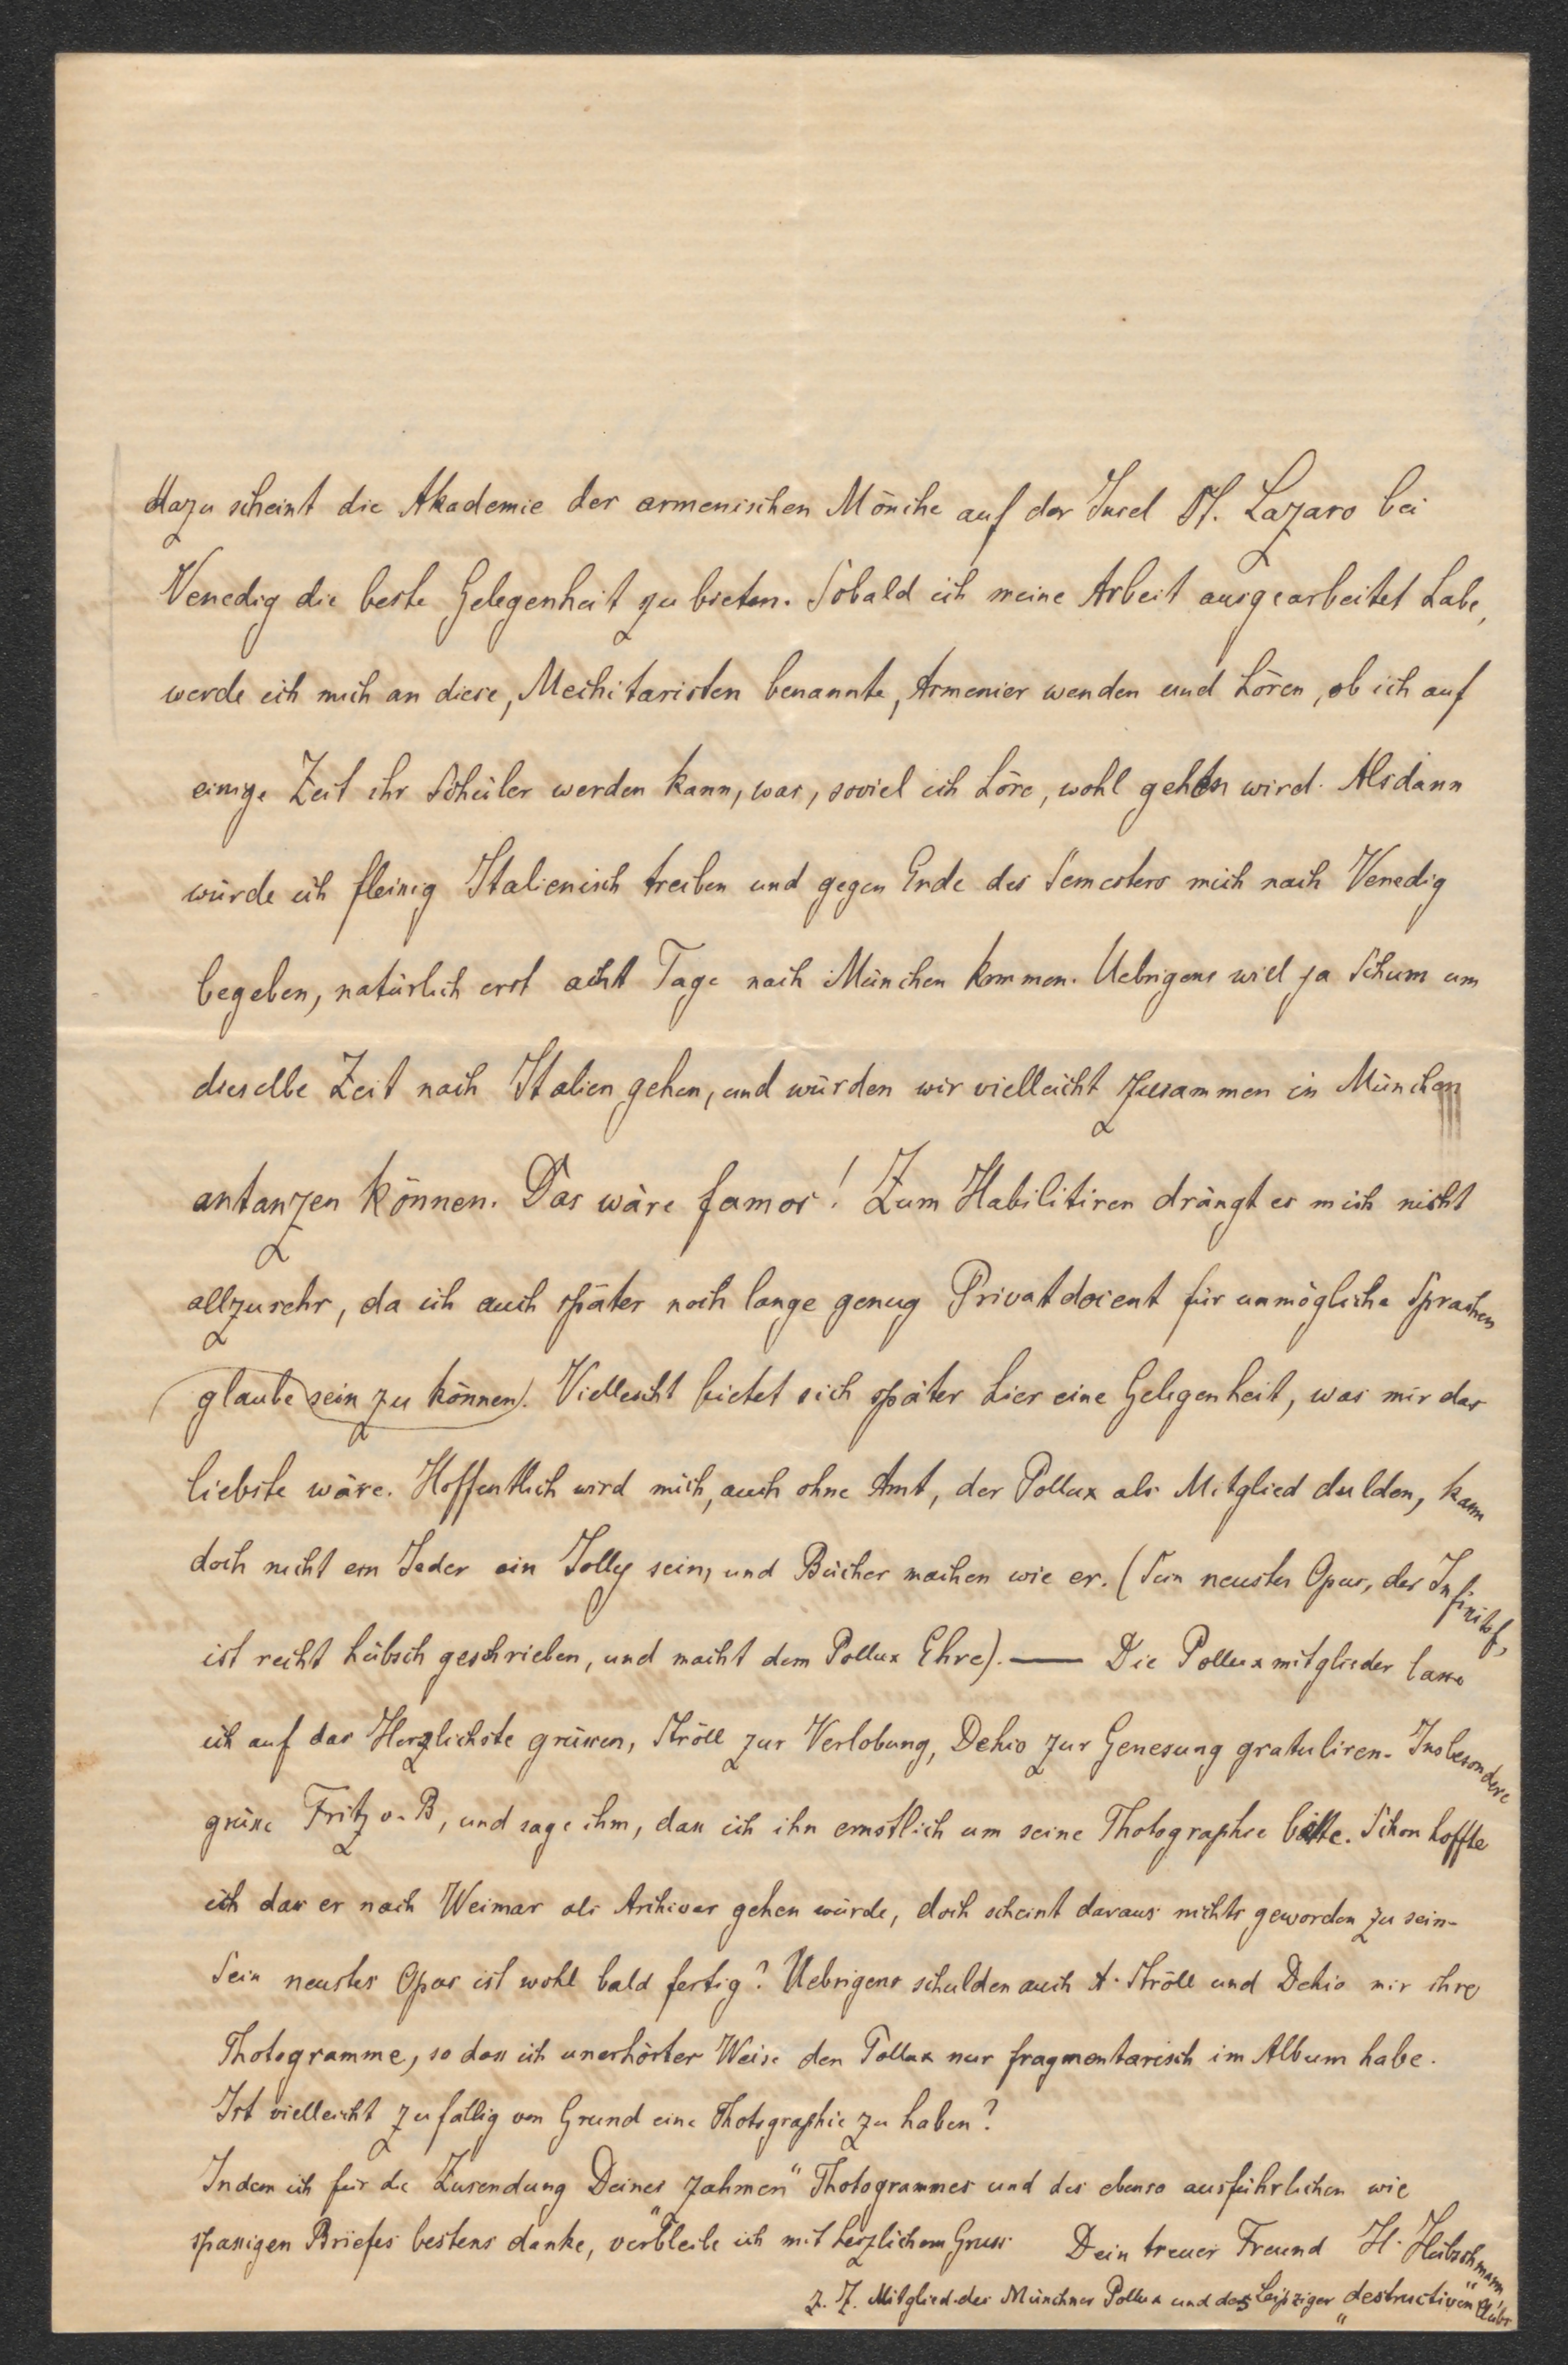 dazu scheint die Akademie der armenischen Mönche auf der Insel St. Lazaro bei
Venedig die beste Gelegenheit zu bieten. Sobald ich meine Arbeit ausgearbeitet habe,
werde ich mich an diese, Mechitaristen benannte, Armenier wenden und hören, ob ich auf
einige Zeit ihr Schüler werden kann, was, soviel ich höre, wohl gehen wird. Alsdann
würde ich fleissig Italienisch treiben und gegen Ende des Semesters mich nach Venedig
begeben, natürlich erst acht Tage nach München kommen. Uebrigens will ja Schum um
dieselbe Zeit nach Italien gehen, und würden wir vielleicht zusammen in München
antanzen können. Das wäre famos! Zum Habilitiren drängt es mich nicht
allzusehr, da ich auch später noch lange genug Privatdocent für unmögliche Sprachen
glaube sein zu können. Vielleicht bietet sich später hier eine Gelegenheit, was mir das
liebste wäre. Hoffentlich wird mich, auch ohne Amt, der Pollux als Mitglied dulden, kann
doch nicht ein Jeder ein Jolly sein, und Bücher machen wie er. (Sein neustes Opus, der Infinitif,
ist recht hübsch geschrieben, und macht dem Pollux Ehre). — Die Polluxmitglieder lasse
ich auf das Herzlichste grüssen, Ströll zur Verlobung, Dehio zur Genesung gratuliren. Insbesondere
grüsse Fritz v. B, und sage ihm, dass ich ihn ernstlich um seine Photographie bitte. Schon hoffte
ich dass er nach Weimar als Archivar gehen würde, doch scheint daraus nichts geworden zu sein.
Sein neustes Opus ist wohl bald fertig? Uebrigens schulden auch A. Ströll und Dehio mir ihre
Photogramme, so dass ich unerhörter Weise den Pollux nur fragmentarisch im Album habe.
Ist vielleicht zufällig von Grund eine Photographie zu haben?
Indem ich für die Zusendung Deines „zahmen“ Photogrammes und des ebenso ausführlichen wie
spassigen Briefes bestens danke, verbleibe ich mit herzlichem Gruss Dein treuer Freund H. Hübschmann
z. Z. Mitglied des Münchner Pollux und des Leipziger „destructiven“ Clubs